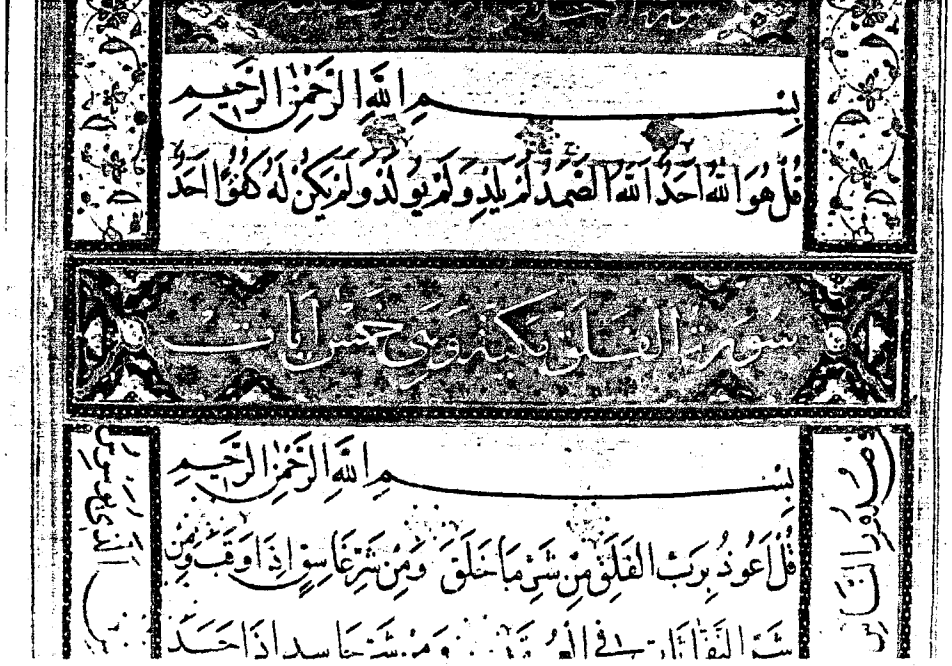 بِسْمِ اللَّهِ الرَّحْمَٰنِ الرَّحِيمِ
قُلْ هُوَ اللَّهُ أَحَدٌ اللَّهُ الصَّمَدُ لَمْ يَلِدْ وَلَمْ يُولَدْ وَلَمْ يَكُنْ لَهُ كُفُوًا أَحَدٌ
سُورَةُ الْفَلَقِ مَكِّيَّةٌ وَهِيَ خَمْسُ آيَاتٍ
بِسْمِ اللَّهِ الرَّحْمَٰنِ الرَّحِيمِ
قُلْ أَعُوذُ بِرَبِّ الْفَلَقِ مِنْ شَرِّ مَا خَلَقَ وَمِنْ شَرِّ غَاسِقٍ إِذَا وَقَبَ وَمِنْ
شَرِّ النَّفَّاثَاتِ فِي الْعُقَدِ وَمِنْ شَرِّ حَاسِدٍ إِذَا حَسَدَ
صُدُورِ النَّاسِ
الَّذِي يُوَسْوِسُ